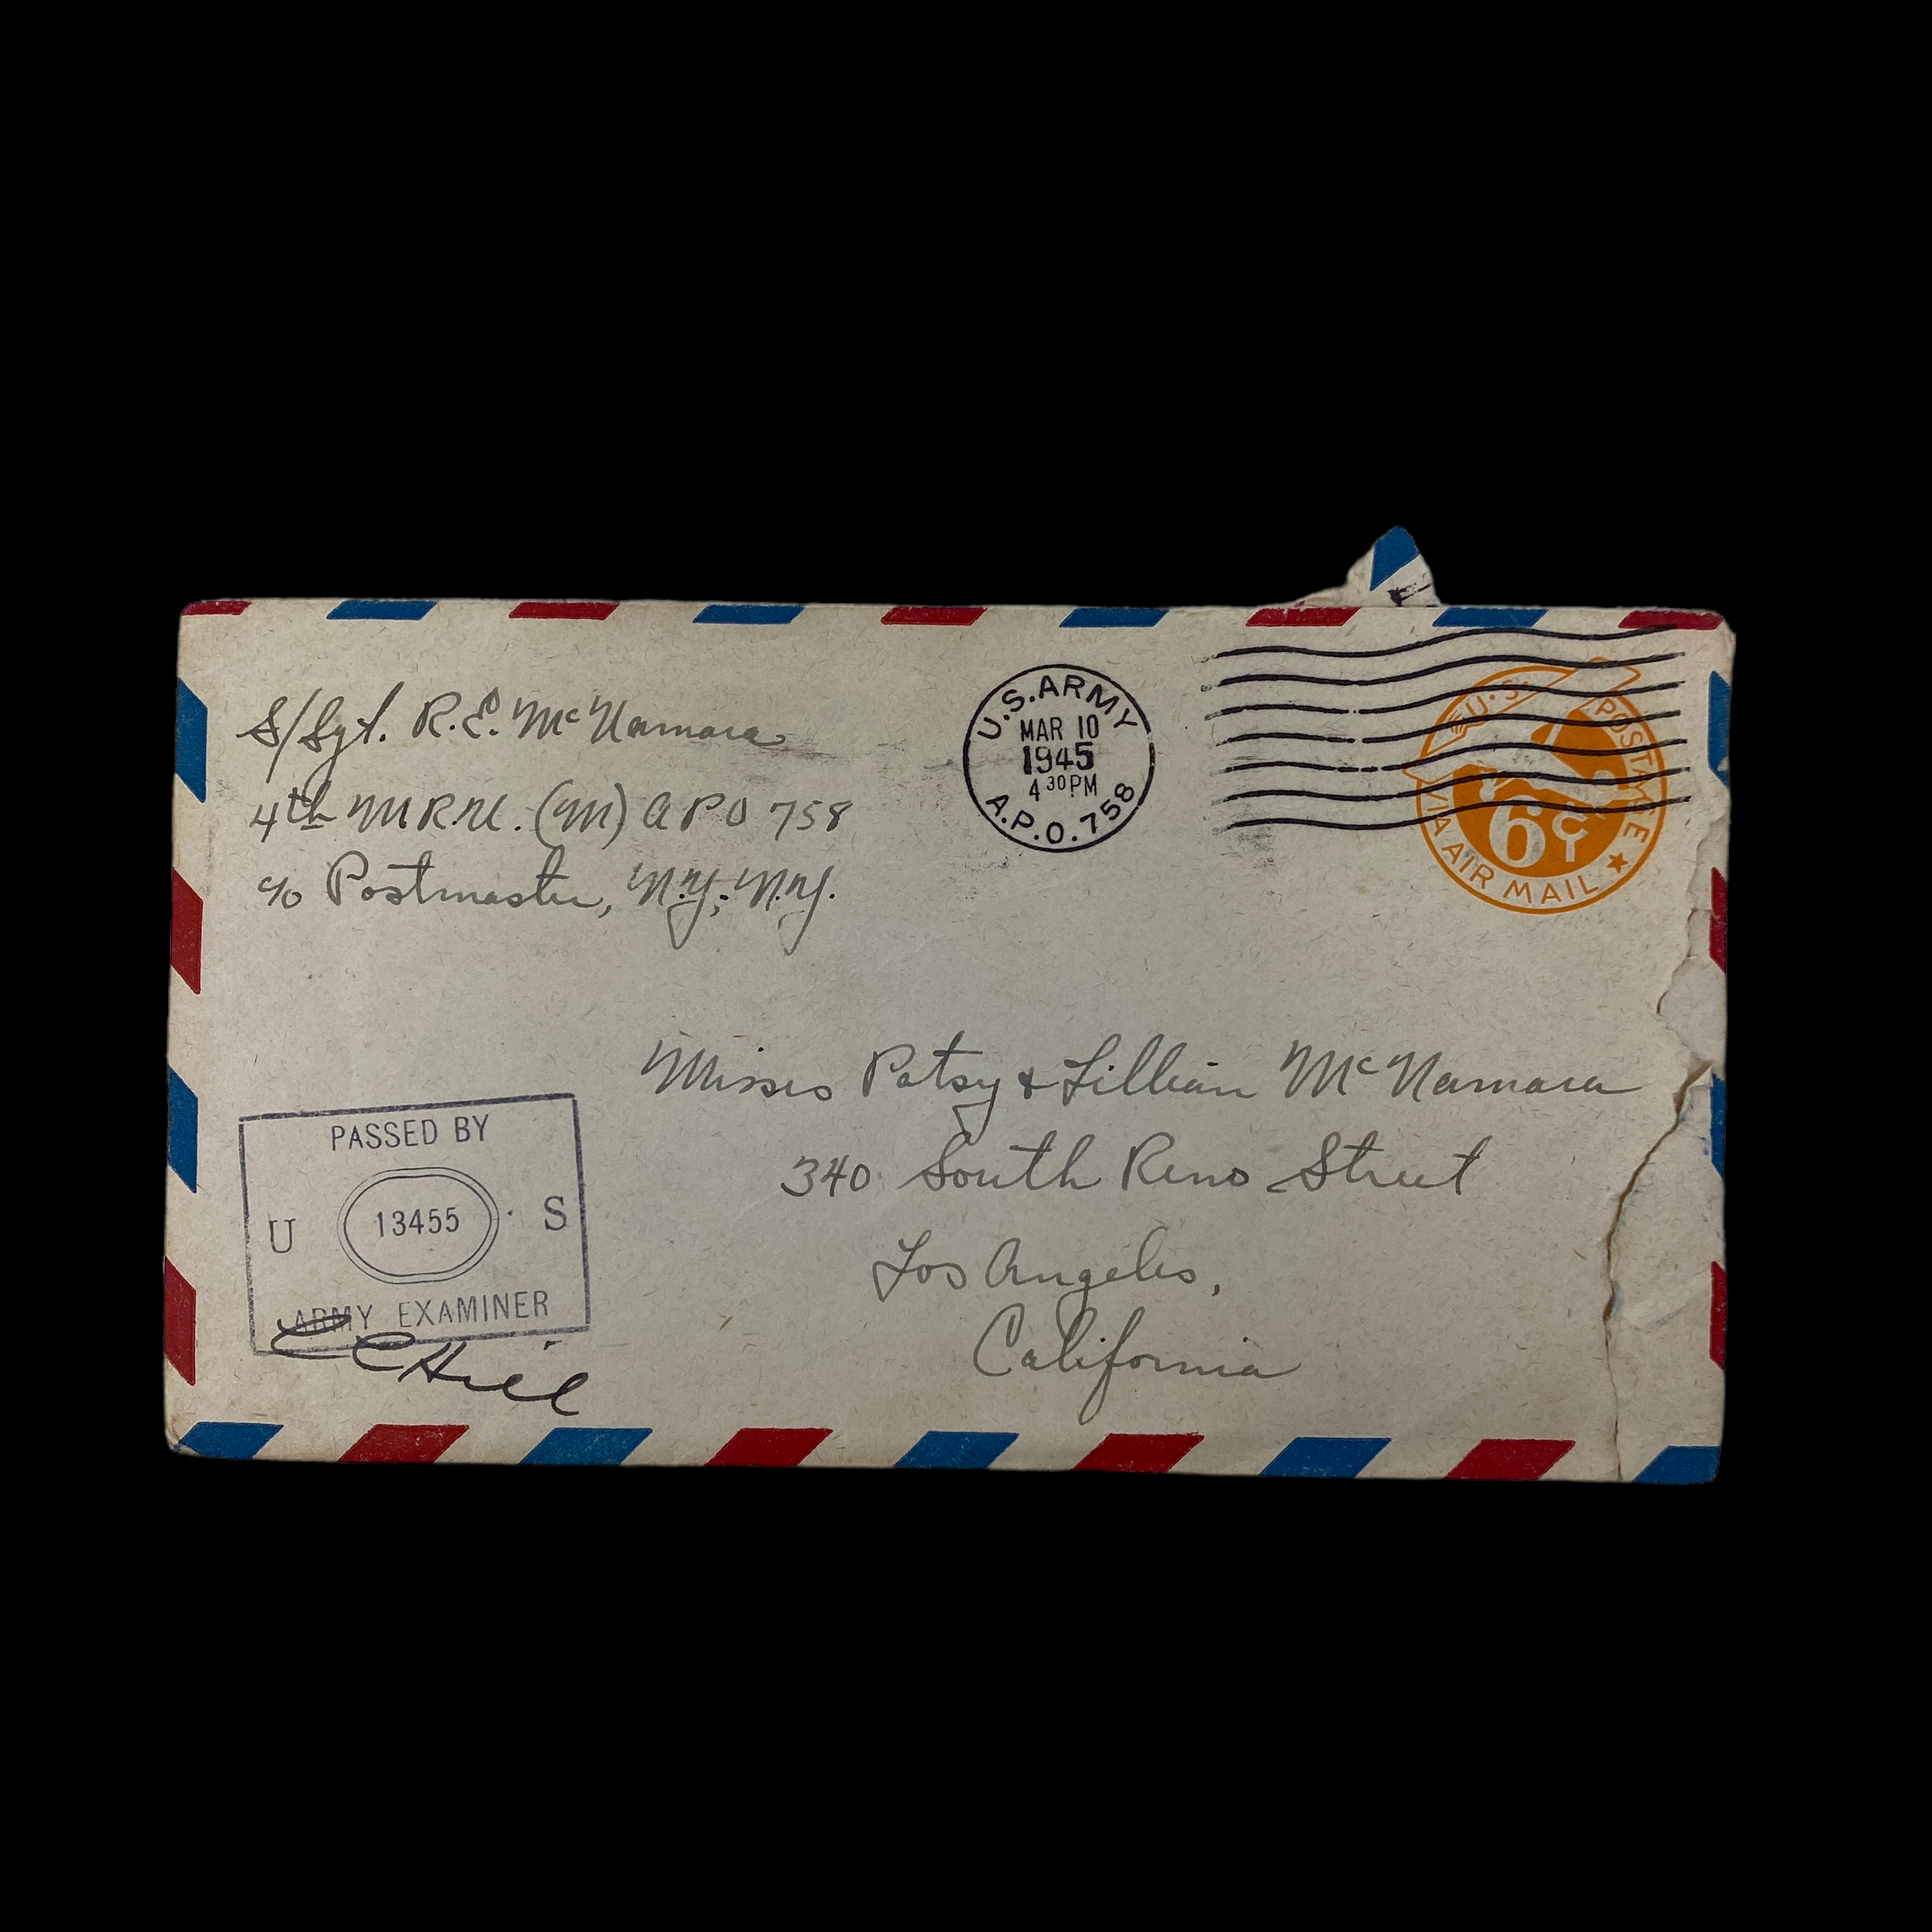 S/Sgt. R.E. McNamara
4th M.R.U. (M) APO 758
c/o Postmaster, N.Y., N.Y.
U.S. ARMY
MAR 10
1945
4 30 PM
A.P.O. 758
U.S. POSTAGE
6¢
VIA AIR MAIL
Misses Patsy & Lillian McNamara
340 South Reno Street
Los Angeles,
California
PASSED BY
U 13455 S
ARMY EXAMINER
Hill